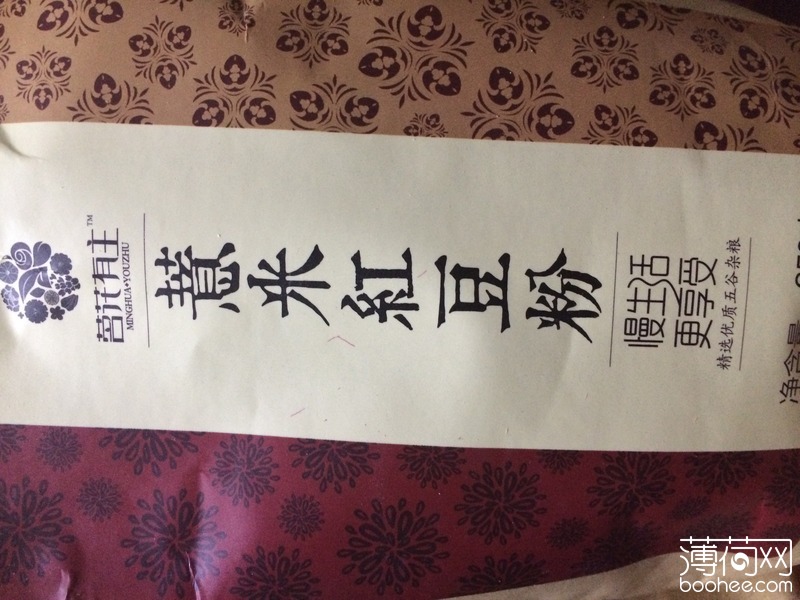 茗花有主™
MINGHUA•YOUZHU
薏米紅豆粉
慢生活
更享受
精选优质五谷杂粮
净含量
薄荷网
boohee.com